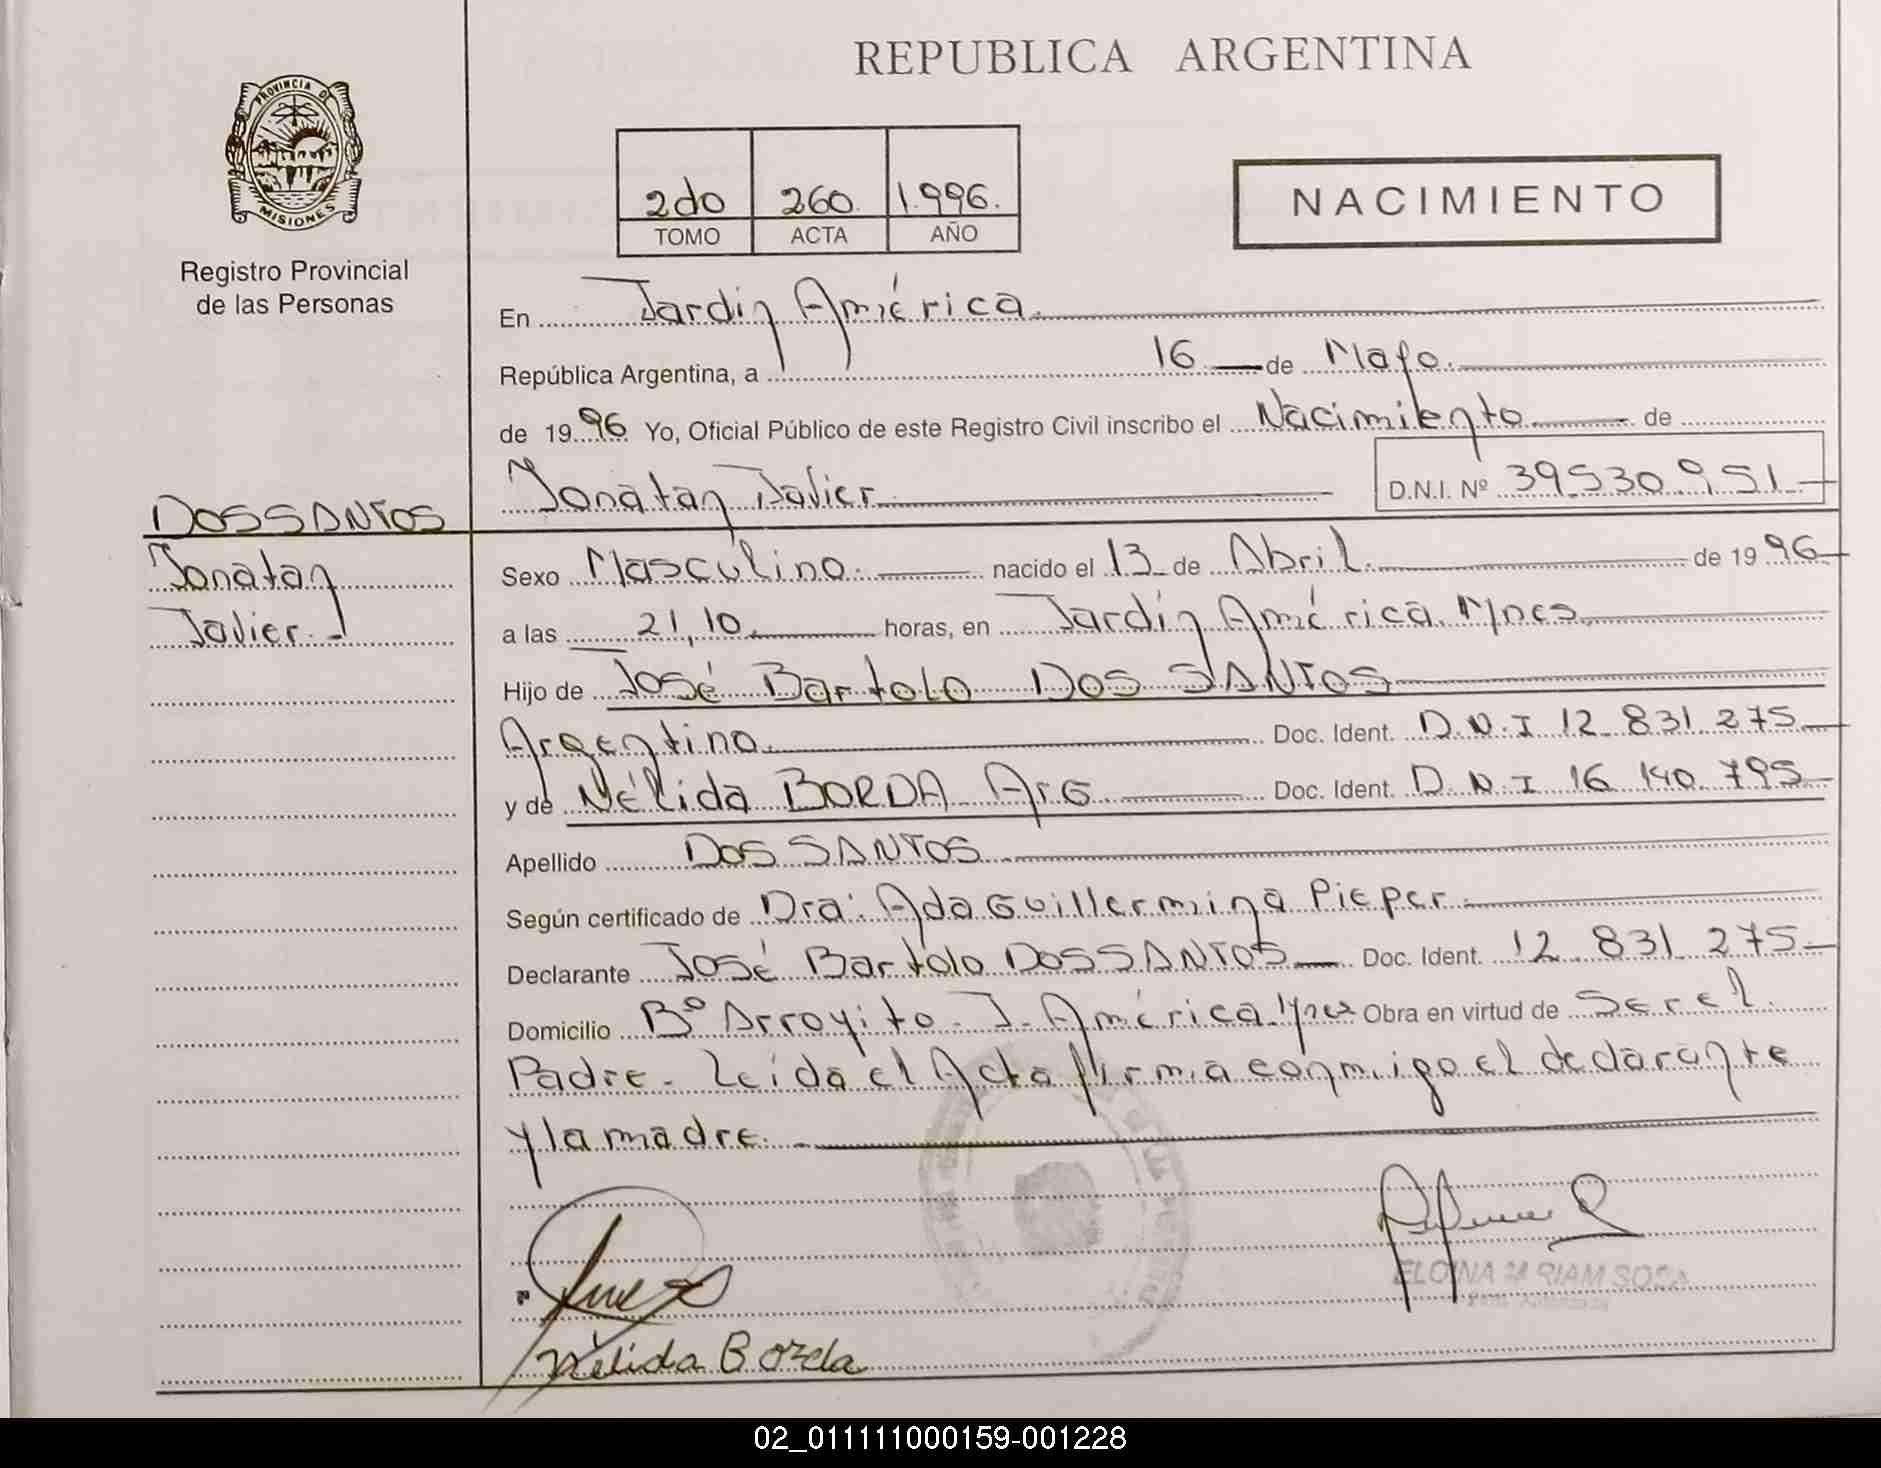 REPUBLICA ARGENTINA
PROVINCIA DE
MISIONES
Registro Provincial
de las Personas
2do 260 1.996.
TOMO ACTA AÑO
NACIMIENTO
En Jardín América.
República Argentina, a 16 de Mayo.
de 1996 Yo, Oficial Público de este Registro Civil inscribo el Nacimiento de
Jonatan Javier D.N.I. Nº 39530951
DOS SANTOS
Jonatan
Javier.
Sexo Masculino. nacido el 13 de Abril. de 1996
a las 21,10 horas, en Jardín América. Mnes.
Hijo de José Bartolo DOS SANTOS
Argentino. Doc. Ident. D.N.I 12.831.275
y de Nélida BORDA Arg. Doc. Ident. D.N.I 16.140.795
Apellido DOS SANTOS
Según certificado de Dra: Ada Guillermina Pieper.
Declarante José Bartolo DOS SANTOS Doc. Ident. 12.831.275
Domicilio Bº Arroyito - J. América. Mnes Obra en virtud de Ser el
Padre - Leída el Acta firma conmigo el declarante
y la madre.
Nélida Borda
02_011111000159-001228